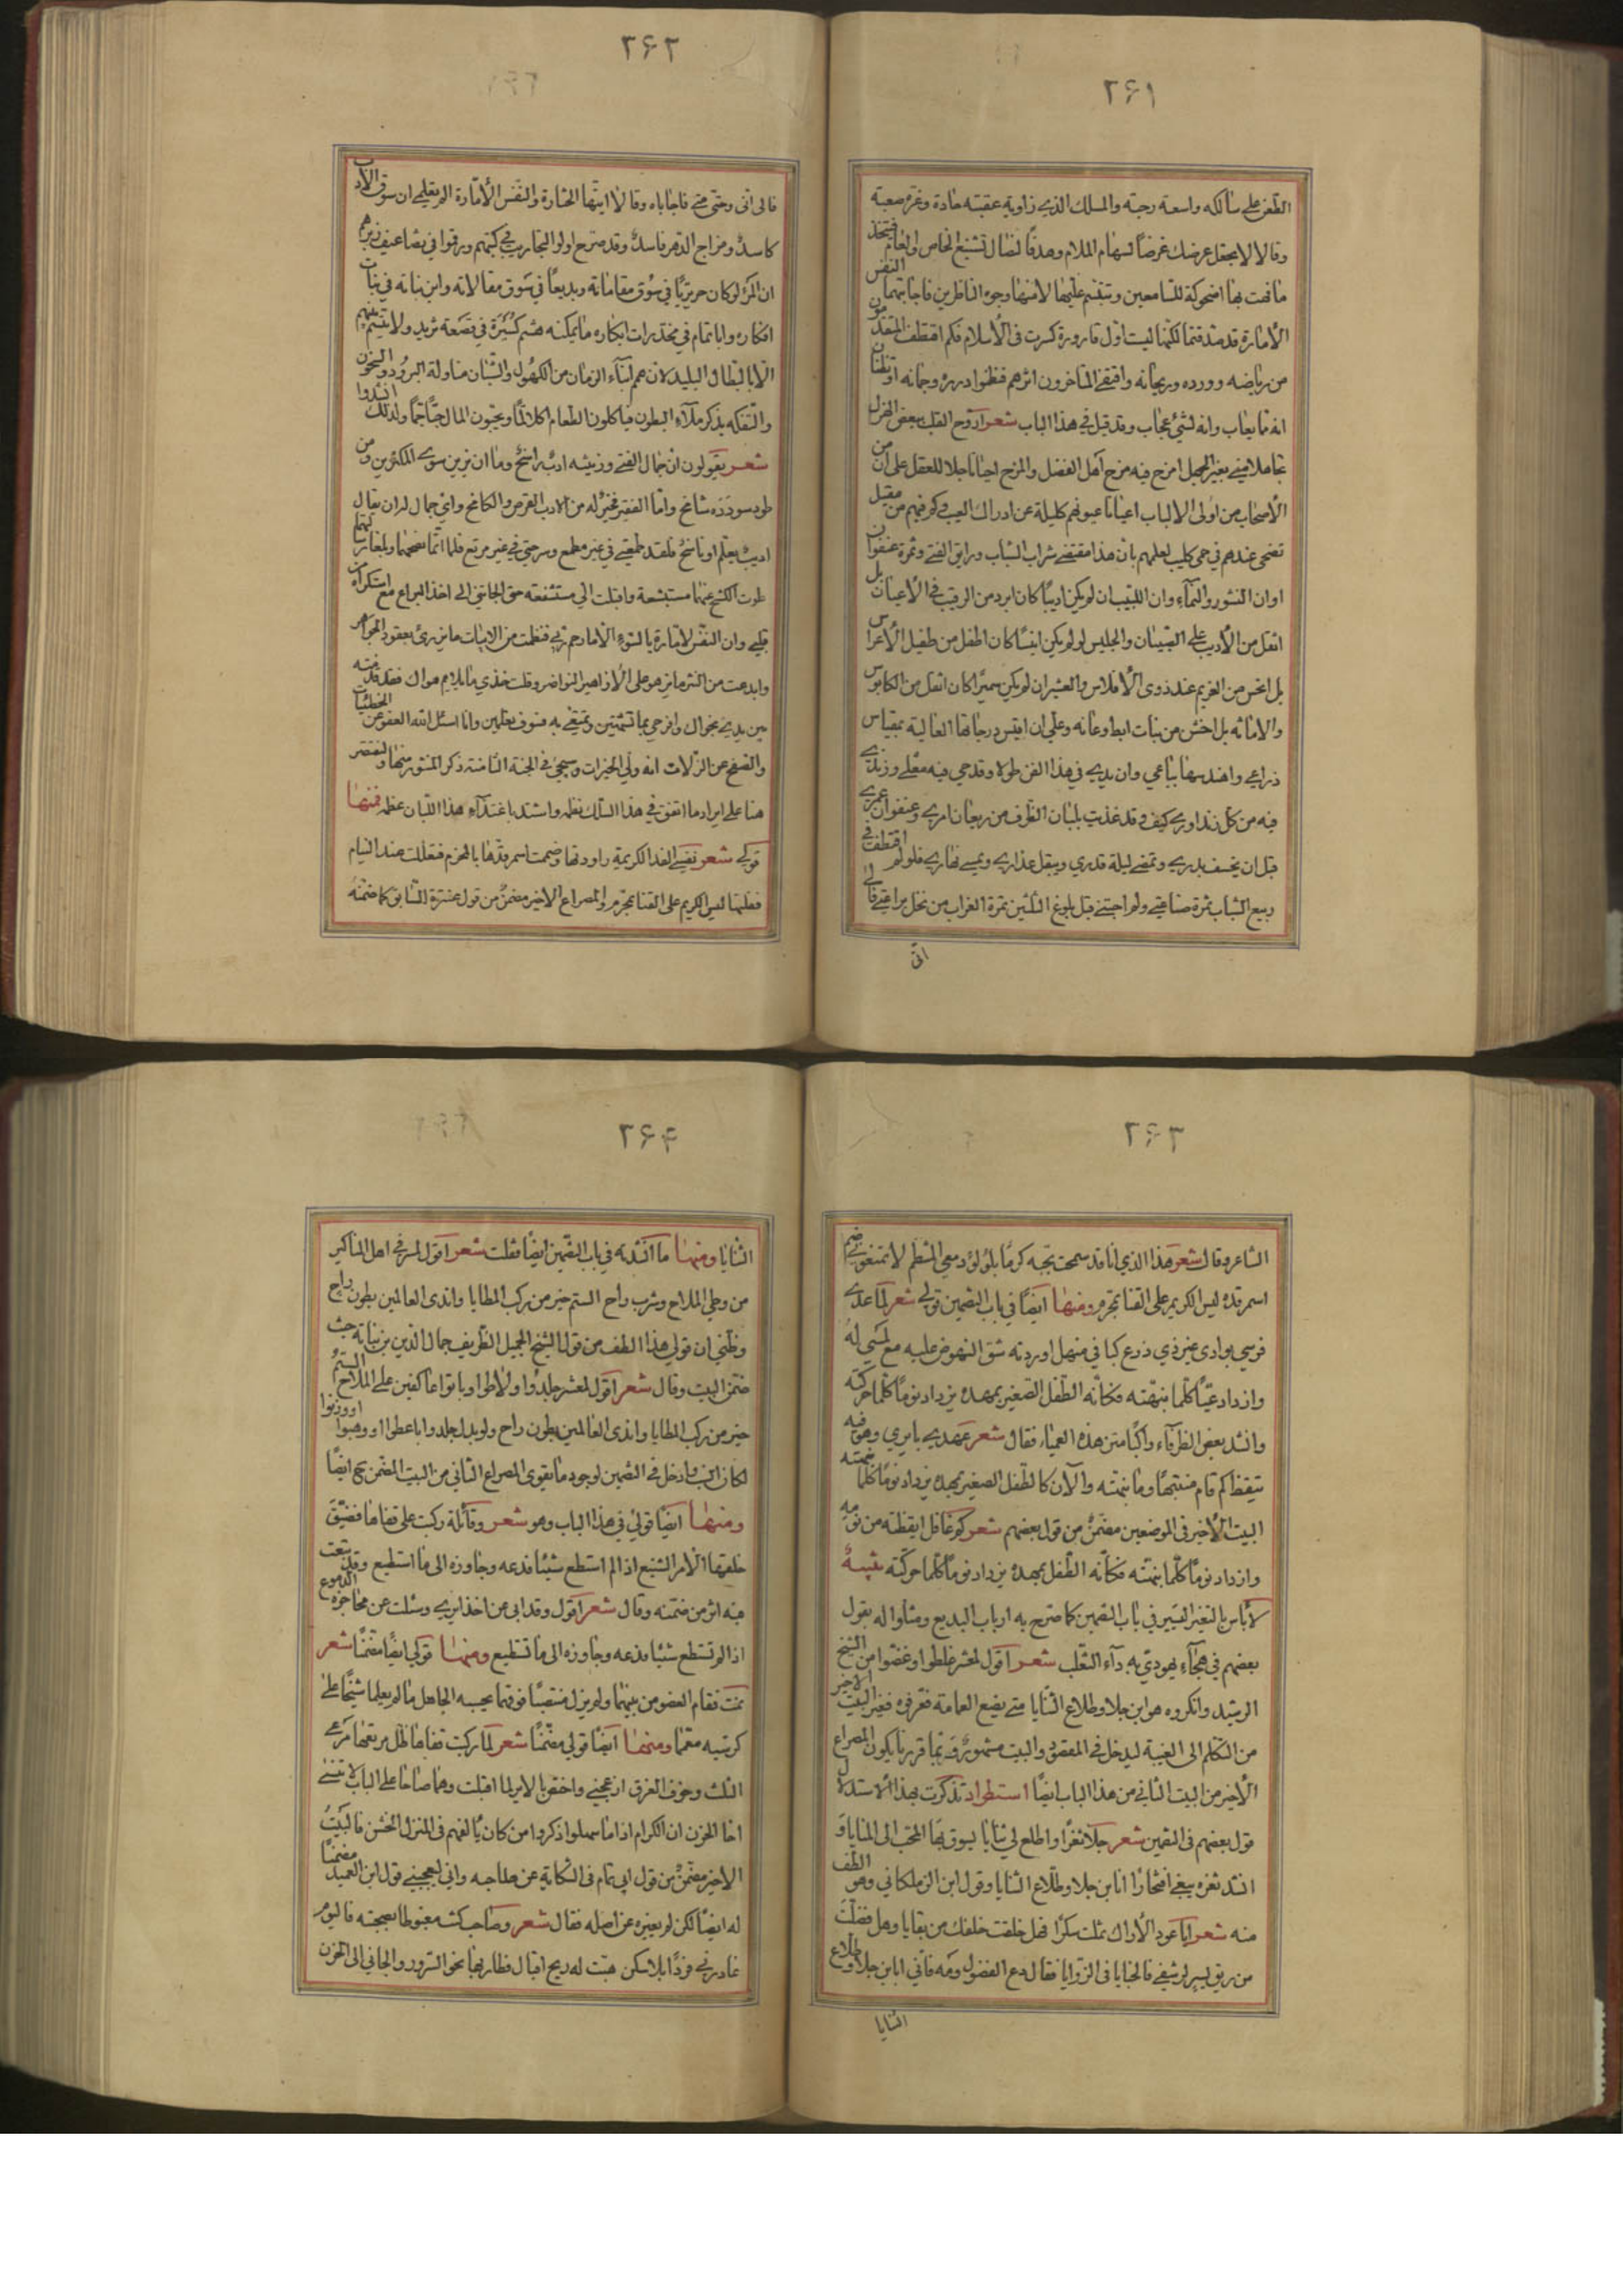 ۲۶۱
الطعن على سالكه واسعة رحبة والمسلك الذي زاوية عقبته حادة وغرة صعبة
وقالا لا تجعل عرضك غرضاً لسهام الملام وهدفاً لنضال تشنيع الخاص والعام فتخذ
ما فهت بها اضحوكة للسامعين وتبتسم عليها لا منها وجوه الناظرين فاجابتهما النفس
الأمارة قد صدقتما لكنها ليست اول قارورة كسرت في الأسلام فكم اقتطف المتقدمون
من رياضه وورده وريحانه واقتفى المتأخرون اثرهم فنظموا درره وجمانه او تظنان
انه مما يعاب وانه لشئ عجاب وقد قيل في هذا الباب شعر اروح القلب ببعض الهزل
تجاهلا مني بغير الجهل امزح فيه مزح اهل الفضل والمزح احيانا جلا للعقل على ان من
الأصحاب من اولى الالباب اعيانا عيونهم كليلة عن ادراك العيب وكم فيهم من مقيل
تضحى عندهم في حمى كليب لعلمهم بان هذا مقتضى شراب الشباب وراق الفتى وثمرة عنفوان
اوان النشور والنماء وان اللبيب ان لم يكن اديباً كان ابرد من الرقيب في الأعيان بل
اثقل من الأديب على الصبيان والجليس لو لم يكن انيساً كان اطفل من طفيل الأعراس
بل انحس من الغريم عند ذوى الأفلاس والعشير ان لم يكن سميراً كان اثقل من الكابوس
والامانه بل اخش من نبات ابط وعانه وعلي ان اقيس درجاتها العالية بمقياس
ذراعي واهندسها بباعي وان يدي في هذا الفن طولا وقدحي فيه معلى وزندي
فيه من كل زند اوري كيف وقد غذيت بلبان الظرف من ريعان امري وعنفوان عمري
قبل ان يخسف بدري وتمضى ليلة قدري ويبقل عذاري ويمسي نهاري فلو لم اقتطف في
ربيع الشباب ثمرة صناعتي ولم اجتنى قبل بلوغ الثلثين تمرة الغراب من نخل براعتي فالى
انى
۲۶۲
فالى انى وحتى متى فاجاباه وقالا ايتها الختارة والنفس الأمارة الم يقل ان سوق الأدب
كاسد ومزاج الدهر فاسد وقد صرح اولوا التجارب في كتبهم ورقموا في تضاعيف زبرهم
ان المرء لو كان حريريًا في سوق مقاماته وبديعاً في سوق مقالاته وابن نباته في نبات
افكاره وابا تمام في مخدرات ابكاره ما يمكنه هشم كسيرة في قصعة ثريد ولا يتسم منهم
الا بالبطال البليد لان هم ابناء الزمان من الكهول والشبان مناولة البرود والبخور
والتفكه بذكر ملاء البطون فيأكلون الطعام اكلا لما ويحبون المال حبا جما ولذلك انشدوا
شعر يقولون ان جمال الفتى وزينته ادب راسخ وما ان يزين سوى المكثرين ومن
طود سودده شامخ واما الفقير فخير له من الادب القرص والكامخ واي جمال له ان يقال
اديب يعلم او ناسخ فلقد طمعتي في غير مطمع وسرحتي في غير مرتع فلما
طوت الكشح عنها مستبشعة واقبلت الي مستشفعة حتى الجأتني الى اخذ اليراع مع استكراه من
قلبي وان النفس لامارة بالسوء الا ما رحم ربي فنظمت من الابيات ما يزرئ بعقود الجواهر
وابدعت من النثر ما يزهو على الأزاهير النواضر وقلت خذي ما يلايم هواك فقد قدمته
بين يدي نجواك وافرحي بما تشتهين وتمتعي به فسوف تعلمين وانا اسئل الله العفو عن الخطيئات
والصفح عن الزلات انه ولي الخيرات وسيجئ في الجنة الثامنة ذكر المنثور منها ونقتصر
هنا على ايراد ما اتفق في هذا السلك نظمه واشتد باغتذاء هذا اللبان عظمه فمنها
قولي شعر نفسي الفدا لكريمة راودتها وضممت اسمر قدها بالمحزم فتعللت عند التيام
فقلتها ليس الكريم على القنا بمحرم والمصراع الاخير مضمن من قول عنترة السابق كما ضمنه
۲۶۳
الشاعر وقال شعر هذا الذي انا قد سمحت بحبه كرما بلؤلؤ دمعي المنظم لا تمنعوني ضم
اسمر قده ليس الكريم على القنا بمحرم ومنها ايضاً في باب التضمين قولي شعر لما عدى
فرسي بوادى غير ذي زرع كبا في منهل اوردته شق النهوض عليه مع لمسي له
وازداد عيًا كلما نبهته فكأنه الطفل الصغير بمهده يزداد نوماً كلما حركته
وانشد بعض الظرفاء راكباً متن هذه العمياء فقال شعر عهدي بايري وهو فيه
تيقظ كم قام منتبها وما نبهته والآن كالطفل الصغير بمهده يزداد نوماً كلما نبهته
البيت الأخير في الموضعين مضمن من قول بعضهم شعر كم غافل ايقظته من نومه
وازداد نوماً كلما نبهته فكأنه الطفل بمهده يزداد نوماً كلما حركته تنبيه
لا بأس بالتغير اليسير في باب التضمين كما صرح به ارباب البديع ومثلوا له بقول
بعضهم في هجاء يهودي به داء الثعلب شعر اقول لمعشر غلطوا وغضوا من الشيخ
الرشيد وانكروه هو ابن جلا وطلاع الثنايا متى يضع العمامة تعرفوه فغير البيت الاخير
من التكلم الى الغيبة ليدخل في المقصود والبيت مشهور وبما قررنا يكون المصراع
الأخير من البيت الثاني من هذا الباب ايضاً استطراد تذكرت بهذا الاستدلال
قول بعضهم في التضمين شعر جلا ثغرا واطلع لي ثنايا يسوق بها المحب الى المنايا و
انشد ثغره يبغي افتخارا انا ابن جلا وطلاع الثنايا وقول ابن الزملكاني وهو الطف
منه شعر ايا عود الأراك ثملت سكرا فهل خلفت خلفك من بقايا وهل فضلت
من ريق يسير لرشفي فالخبايا في الزوايا فقال دع الفضول ومه فاني انا ابن جلا وطلاع
الثنايا
۲۶۴
الثنايا ومنها ما انشدته في باب التضمين ايضاً فقلت شعر اقول لمسرفي اهل المناكير
من وطي الملاح وشرب راح الستم خير من ركب المطايا واندى العالمين بطون راح
وظني ان قولي هذا الطف من قول الشيخ الجميل الظريف جمال الدين بن نباتة حيث
ضمن البيت وقال شعر اقول لمعشر جلدوا ولاطوا وباتوا عاكفين على الملاح الستم
خير من ركب المطايا واندى العالمين بطون راح ولو بدل جلدوا باعطوا او وهبوا او وزنوا
لكان انسب وادخل في التضمين لوجود ما يقوى المصراع الثاني من البيت المضمن
ومنها ايضاً قولي في هذا الباب وهو شعر وقائلة ركبت على قفاها فضيق
حلقها الأمر الشنيع اذا لم استطع شيئاً فدعه وجاوزه الى ما استطيع وقد تبعت
فيه اثر من ضمنه وقال شعر اقول وقد ابى عن اخذ ايري وسئلت عن محاجره الدموع
اذا لم تستطع شيئا فدعه وجاوزه الى ما تستطيع ومنها قولي ايضاً مضمناً شعر
نمت فقام العضو من بينهما ولم يزل منتصبًا فوقهما يحسبه الجاهل ما لم يعلما شيخًا على
كرسيه معمما ومنها ايضاً قولي مضمناً شعر لما ركبت قفاها
الفلك وخوف الغرق ازعجني واخفق بالاير لما اقبلت وها صاحا على الباب لا تنسى
اخا الحزن ان الكرام اذا ما سهلوا ذكروا من كان يألفهم في المنزل الخشن فالبيت
الاخير مضمن من قول ابى تمام في الشكاية عن صاحبه واني ليعجبني قول ابن العميد مضمناً
له ايضاً لكن لم يغيره عن اصله فقال شعر وصاحب كنت مغبوطا بصحبته فاليوم
غادرني فردًا بلا سكن هبت له ريح اقبال فطار بها نحو السرور والجاني الى الحزن